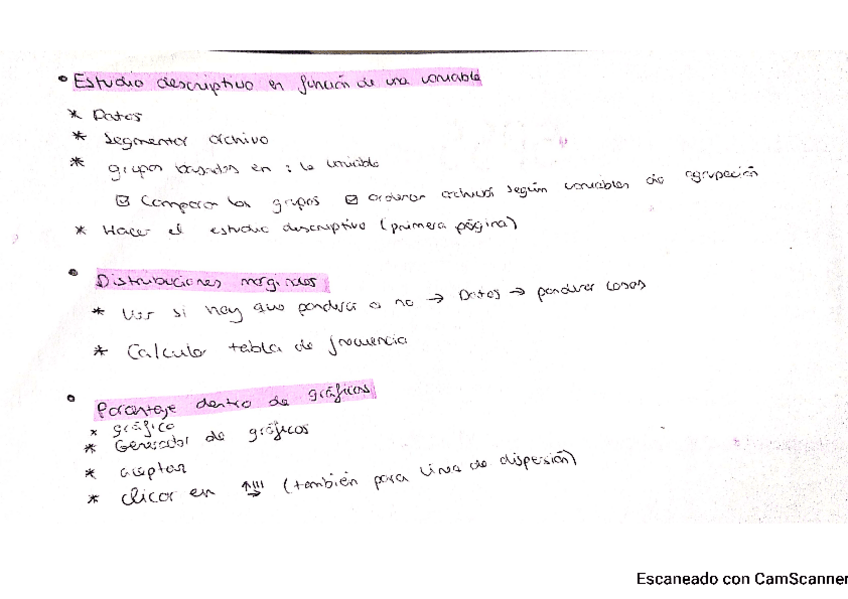 • Estudio descriptivo en función de una variable
* Datos
* Segmentar archivo
* grupos basados en : la variable
☑ Comparar los grupos ☑ ordenar archivos según variables de agrupación
* Hacer el estudio descriptivo (primera página)
• Distribuciones marginales
* Ver si hay que ponderar o no → Datos → ponderar casos
* Calcular tabla de frecuencia
• Porcentaje dentro de gráficos
* gráfico
* Generador de gráficos
* aceptar
* clicar en (también para línea de dispersión)
Escaneado con CamScanner